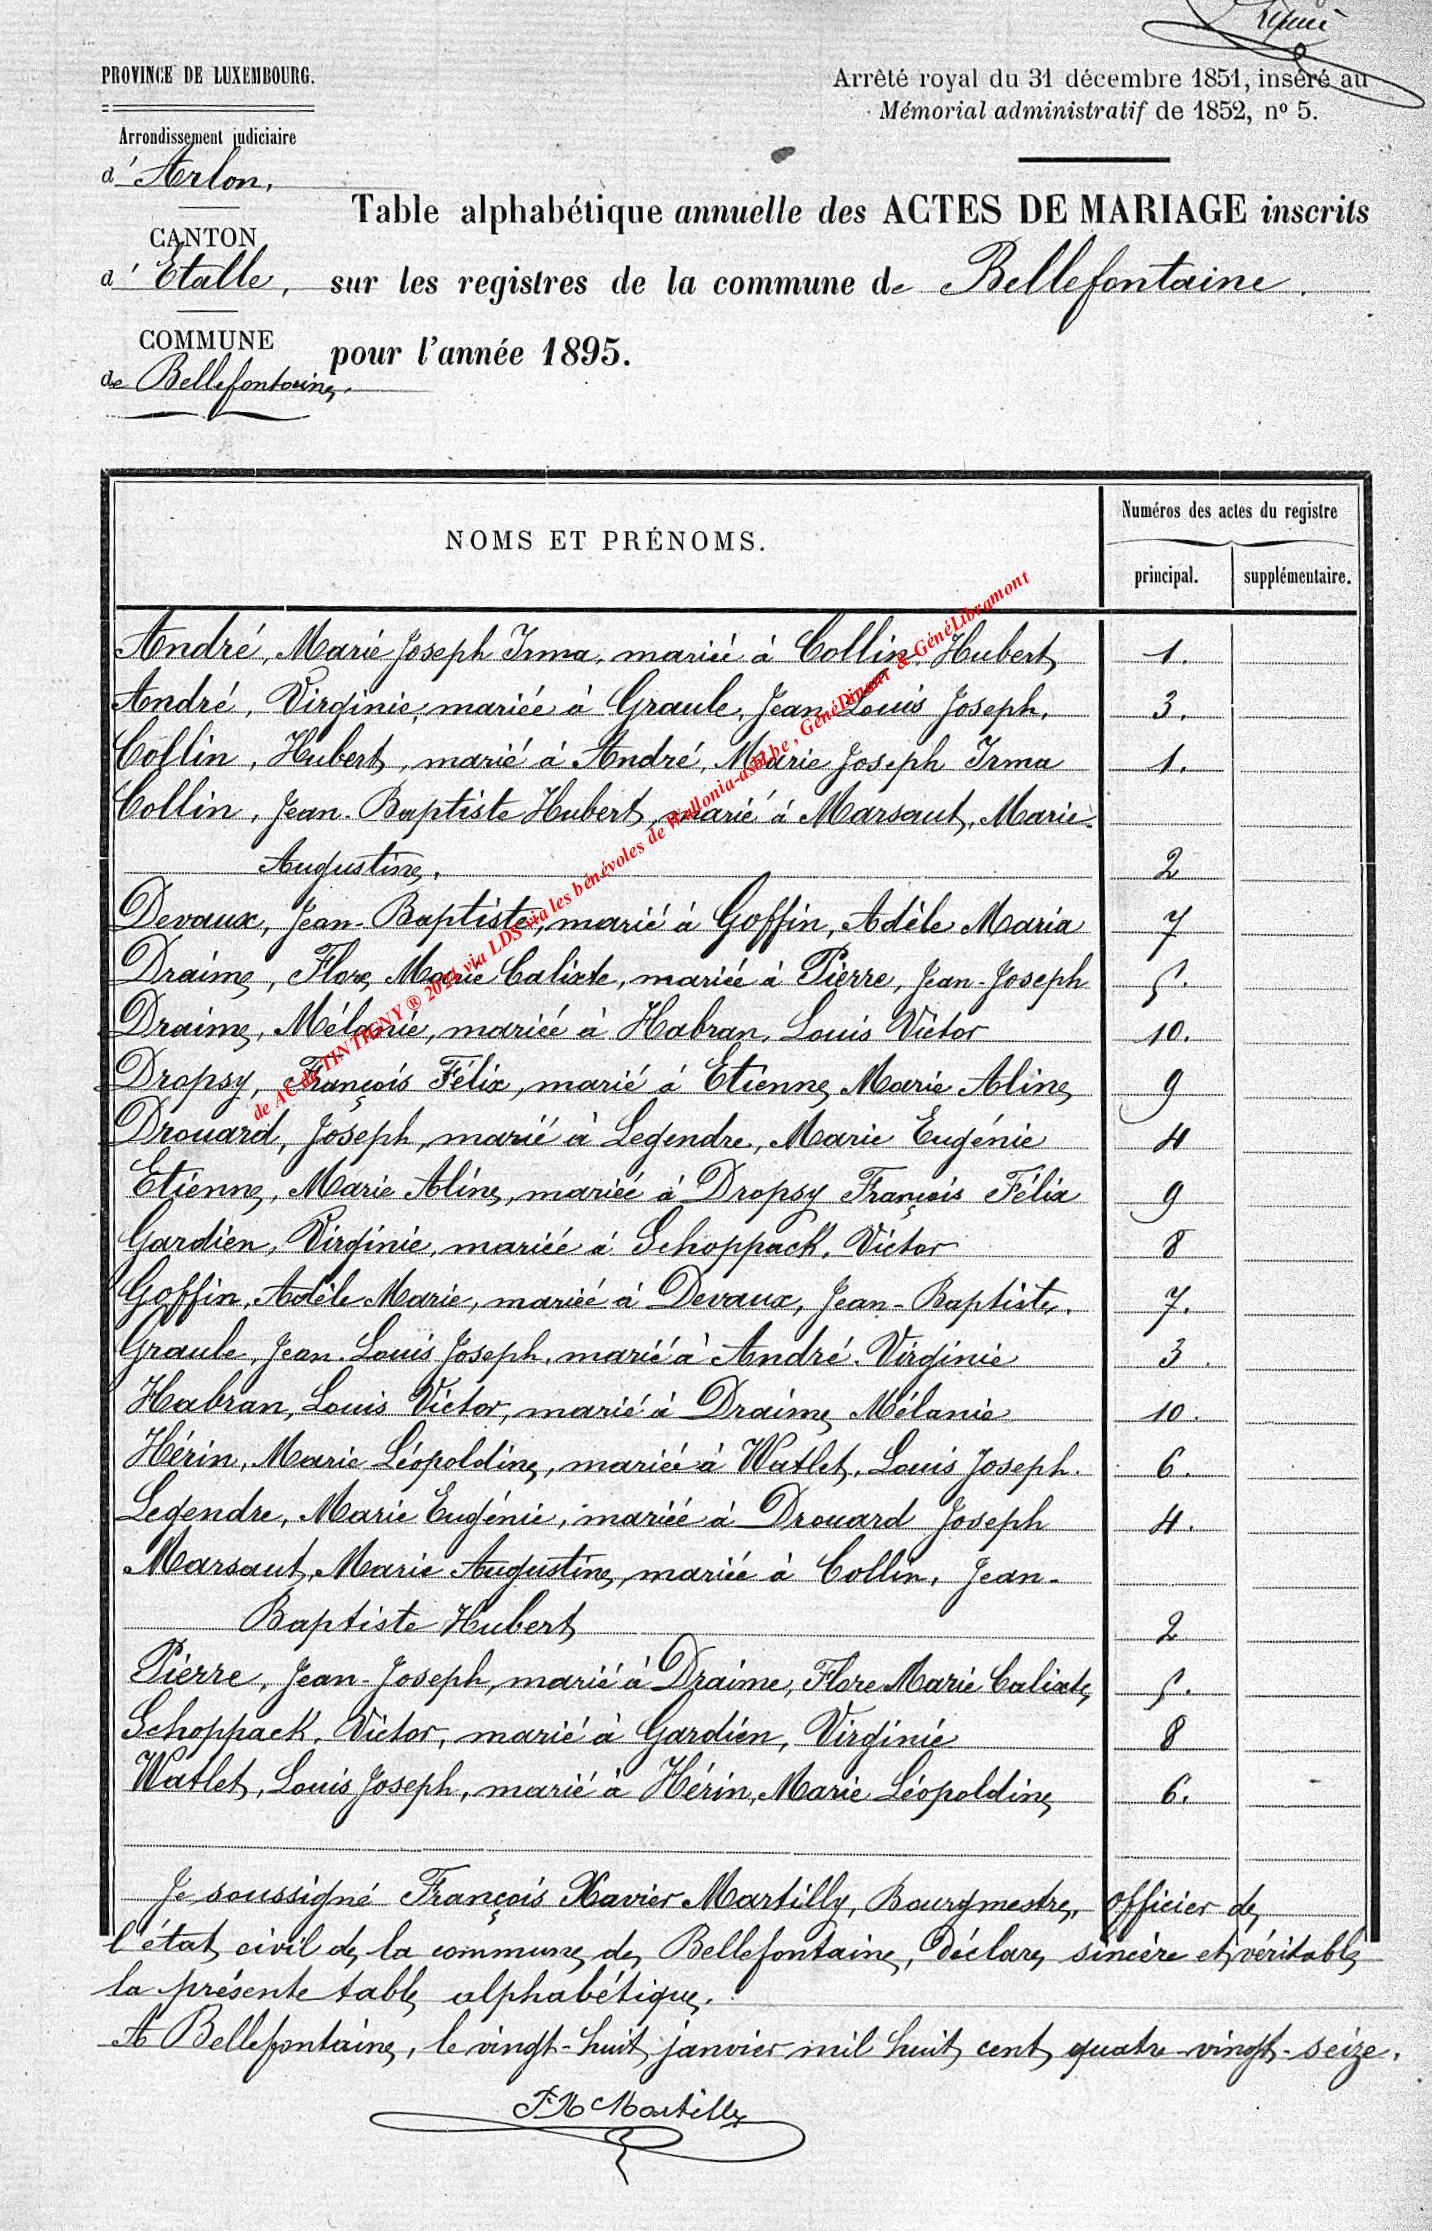 PROVINCE DE LUXEMBOURG.
Arrêté royal du 31 décembre 1851, inséré au
Mémorial administratif de 1852, nº 5.
Arrondissement judiciaire
d' Arlon,
CANTON
d' Etalle,
COMMUNE
de Bellefontaine,
Table alphabétique annuelle des ACTES DE MARIAGE inscrits
sur les registres de la commune de Bellefontaine.
pour l'année 1895.
NOMS ET PRÉNOMS.
Numéros des actes du registre
principal. supplémentaire.
André, Marie Joseph Irma, mariée à Collin, Hubert 1.
André, Virginie, mariée à Graule, Jean Louis Joseph. 3.
Collin, Hubert, marié à André, Marie Joseph Irma 1.
Collin, Jean-Baptiste Hubert, marié à Marsaut, Marie
Augustine. 2
Devaux, Jean-Baptiste, marié à Goffin, Adèle Maria 7
Draime, Flore Marie Calixte, mariée à Pierre, Jean-Joseph 5.
Draime, Mélanie, mariée à Habran, Louis Victor 10.
Dropsy, François Félix, marié à Etienne Marie Aline 9
Drouard, Joseph, marié à Legendre, Marie Eugénie 4
Etienne, Marie Aline, mariée à Dropsy François Félix 9
Gardien, Virginie, mariée à Schoppack, Victor 8
Goffin, Adèle Marie, mariée à Devaux, Jean-Baptiste. 7.
Graule, Jean-Louis Joseph, marié à André. Virginie 3.
Habran, Louis Victor, marié à Draime Mélanie 10.
Hérin, Marie Léopoldine, mariée à Watlet, Louis Joseph. 6.
Legendre, Marie Eugénie, mariée à Drouard Joseph 4.
Marsaut, Marie Augustine, mariée à Collin, Jean-
Baptiste Hubert 2
Pierre, Jean-Joseph, marié à Draime, Flore Marie Calixte 5.
Schoppack, Victor, marié à Gardien, Virginie 8
Watlet, Louis Joseph, marié à Hérin, Marie Léopoldine 6.
Je soussigné François Xavier Martilly, Bourgmestre, officier de
l'état civil de la commune de Bellefontaine, déclare sincère et véritable
la présente table alphabétique.
A Bellefontaine, le vingt-huit janvier mil huit cent quatre-vingt-seize.
FX Martilly
de AC de TINTIGNY ® 2024 via LDS via les bénévoles de Wallonia-asbl.be , GénéDinant & GénéLibramont